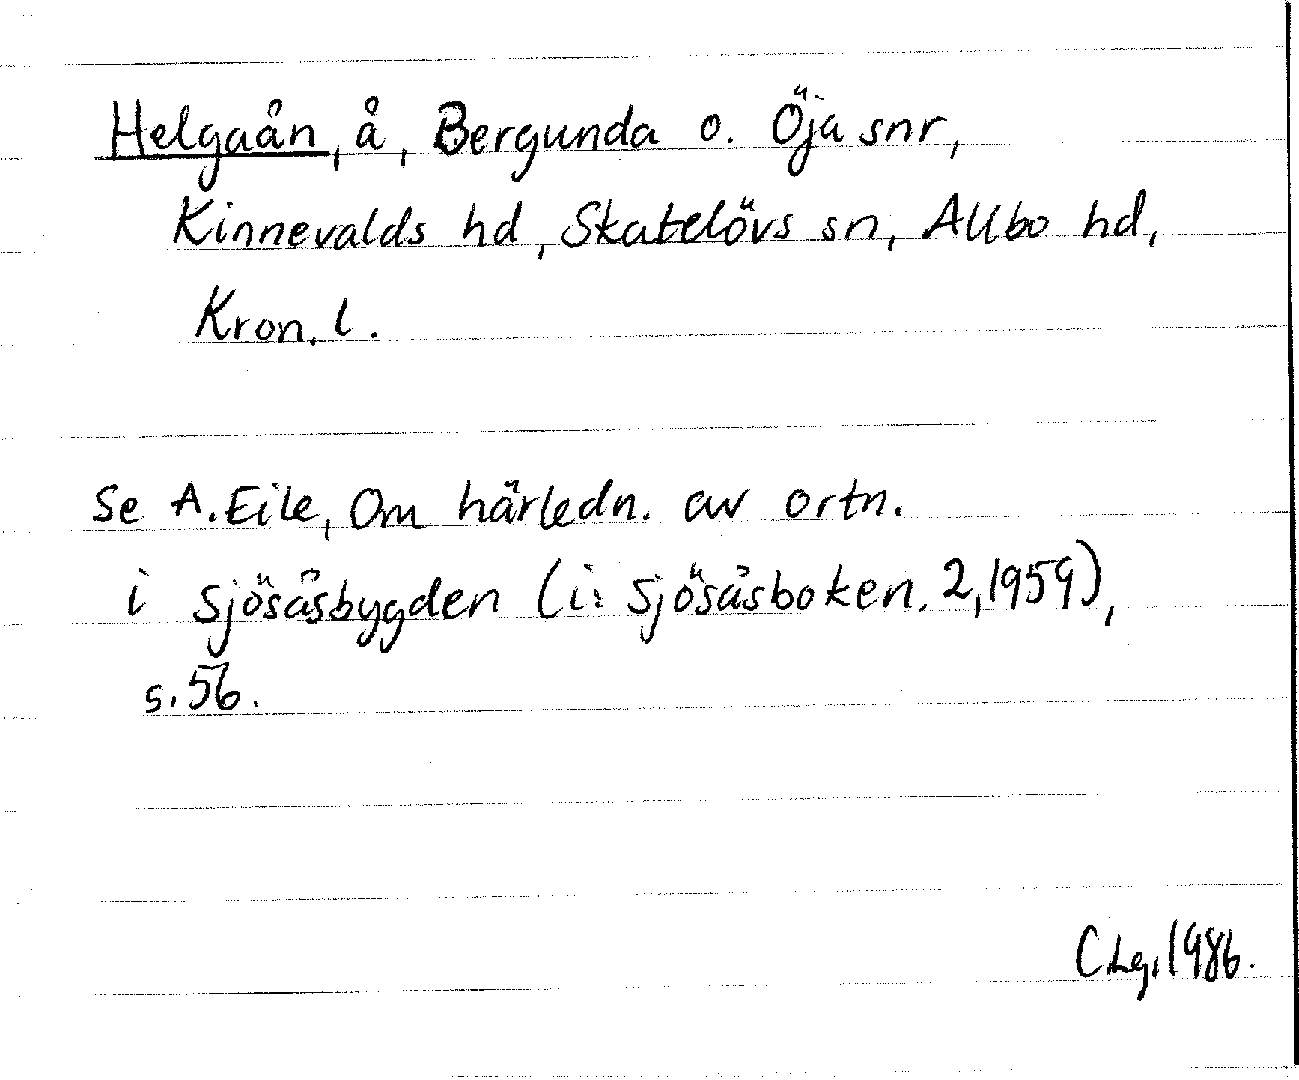 Helgaån, å, Bergunda o. Öja snr,
Kinnevalds hd, Skatelövs sn, Allbo hd,
Kron. l.
Se A. Eile, Om härledn. av ortn.
i Sjösåsbygden (i: Sjösåsboken. 2, 1959),
s. 56.
C.Lg. 1986.